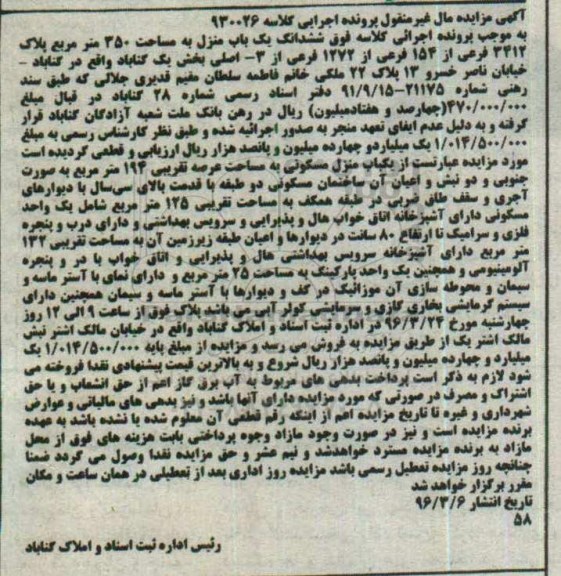 آگهی مزایده مال غیر منقول پرونده اجرایی کلاسه ۹۳۰۰۲۶
به موجب پرونده اجرائی کلاسه فوق ششدانگ یک باب منزل به مساحت ۳۵۰ متر مربع پلاک
۳۲۱۲ فرعی از ۱۵۴ فرعی از ۱۲۷۲ فرعی از ۳- اصلی بخش یک گناباد واقع در گناباد -
خیابان ناصر خسرو ۱۳ پلاک ۲۲ ملکی خانم فاطمه سلطان مقیم قدیری جلالی که طبق سند
رهنی شماره ۲۱۱۷۵-۹۱/۹/۱۵ دفتر اسناد رسمی شماره ۲۸ گناباد در قبال مبلغ
۴۷۰/۰۰۰/۰۰۰(چهارصد و هفتادمیلیون) ریال در رهن بانک ملت شعبه آزادگان گناباد قرار
گرفته و به دلیل عدم ایفای تعهد منجر به صدور اجرائیه شده و طبق نظر کارشناس رسمی به مبلغ
۱/۰۱۴/۵۰۰/۰۰۰ یک میلیاردو چهارده میلیون و پانصد هزار ریال ارزیابی و قطعی گردیده است
مورد مزایده عبارتست از یکباب منزل مسکونی به مساحت عرصه تقریبی ۱۹۴ متر مربع به صورت
جنوبی و دو نبش و اعیان آن ساختمان مسکونی دو طبقه با قدمت بالای سی‌سال با دیوارهای
آجری و سقف طاق ضربی در طبقه همکف به مساحت تقریبی ۱۲۵ متر مربع شامل یک واحد
مسکونی دارای آشپزخانه اتاق خواب هال و پذیرایی و سرویس بهداشتی و دارای درب و پنجره
فلزی و سرامیک تا ارتفاع ۸۰ سانت در دیوارها و اعیان طبقه زیرزمین آن به مساحت تقریبی ۱۳۲
متر مربع دارای آشپزخانه سرویس بهداشتی هال و پذیرایی و اتاق خواب با در و پنجره
آلومینیومی و همچنین یک واحد پارکینگ به مساحت ۲۵ متر مربع و دارای نمای با آستر ماسه و
سیمان و محوطه سازی آن موزائیک در کف و دیوارها با آستر ماسه و سیمان همچنین دارای
سیستم گرمایشی بخاری گازی و سرمایشی کولر آبی می باشد پلاک فوق از ساعت ۹ الی ۱۲ روز
چهارشنبه مورخ ۹۶/۳/۲۴ در اداره ثبت اسناد و املاک گناباد واقع در خیابان مالک اشتر نبش
مالک اشتر یک از طریق مزایده به فروش می رسد و مزایده از مبلغ پایه ۱/۰۱۴/۵۰۰/۰۰۰ یک
میلیارد و چهارده میلیون و پانصد هزار ریال شروع و به بالاترین قیمت پیشنهادی نقدا فروخته می
شود لازم به ذکر است پرداخت بدهی های مربوط به آب برق گاز اعم از حق انشعاب و یا حق
اشتراک و مصرف در صورتی که مورد مزایده دارای آنها باشد و نیز بدهی های مالیاتی و عوارض
شهرداری و غیره تا تاریخ مزایده اعم از اینکه رقم قطعی آن معلوم شده یا نشده باشد به عهده
برنده مزایده است و نیز در صورت وجود مازاد وجوه پرداختی بابت هزینه های فوق از محل
مازاد به برنده مزایده مسترد خواهدشد و نیم عشر و حق مزایده نقدا وصول می گردد ضمنا
چنانچه روز مزایده تعطیل رسمی باشد مزایده روز اداری بعد از تعطیلی در همان ساعت و مکان
مقرر برگزار خواهد شد
تاریخ انتشار ۹۶/۳/۶
۵۸
رئیس اداره ثبت اسناد و املاک گناباد